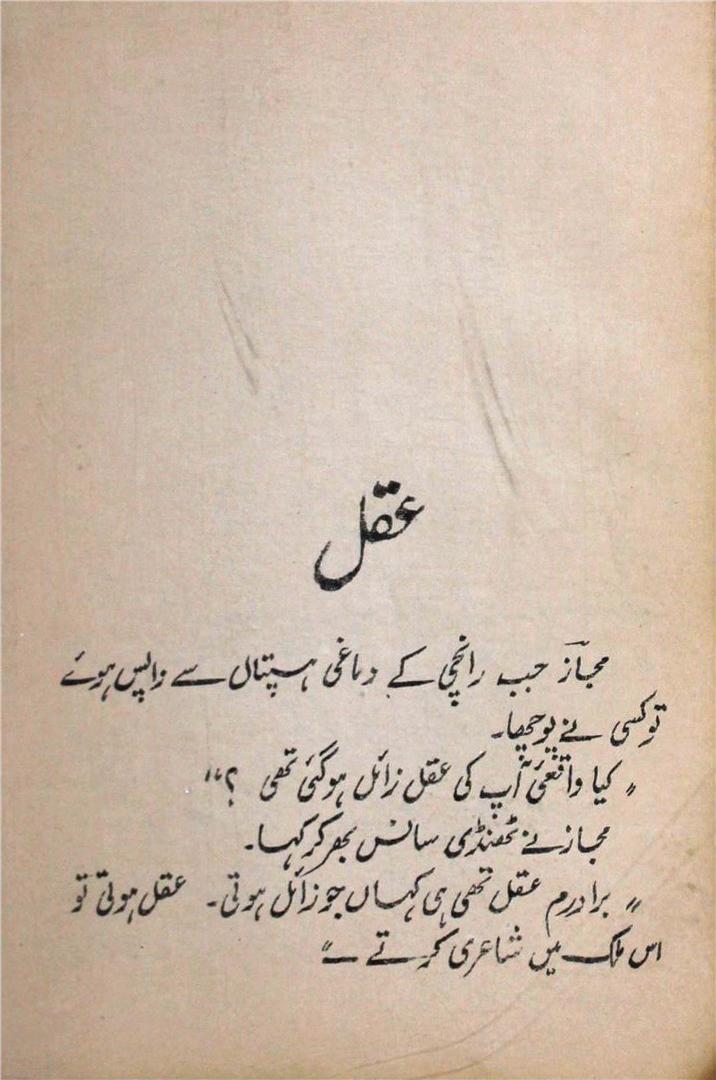 عقل
مجازؔ جب رانچی کے دماغی ہسپتال سے واپس ہوئے
تو کسی نے پوچھا۔
"کیا واقعئ آپ کی عقل زائل ہوگئی تھی ؟"
مجاز نے ٹھنڈی سانس بھر کر کہا۔
"برادرم عقل تھی ہی کہاں جو زائل ہوتی۔ عقل ہوتی تو
اس ملک میں شاعری کرتے ــ"